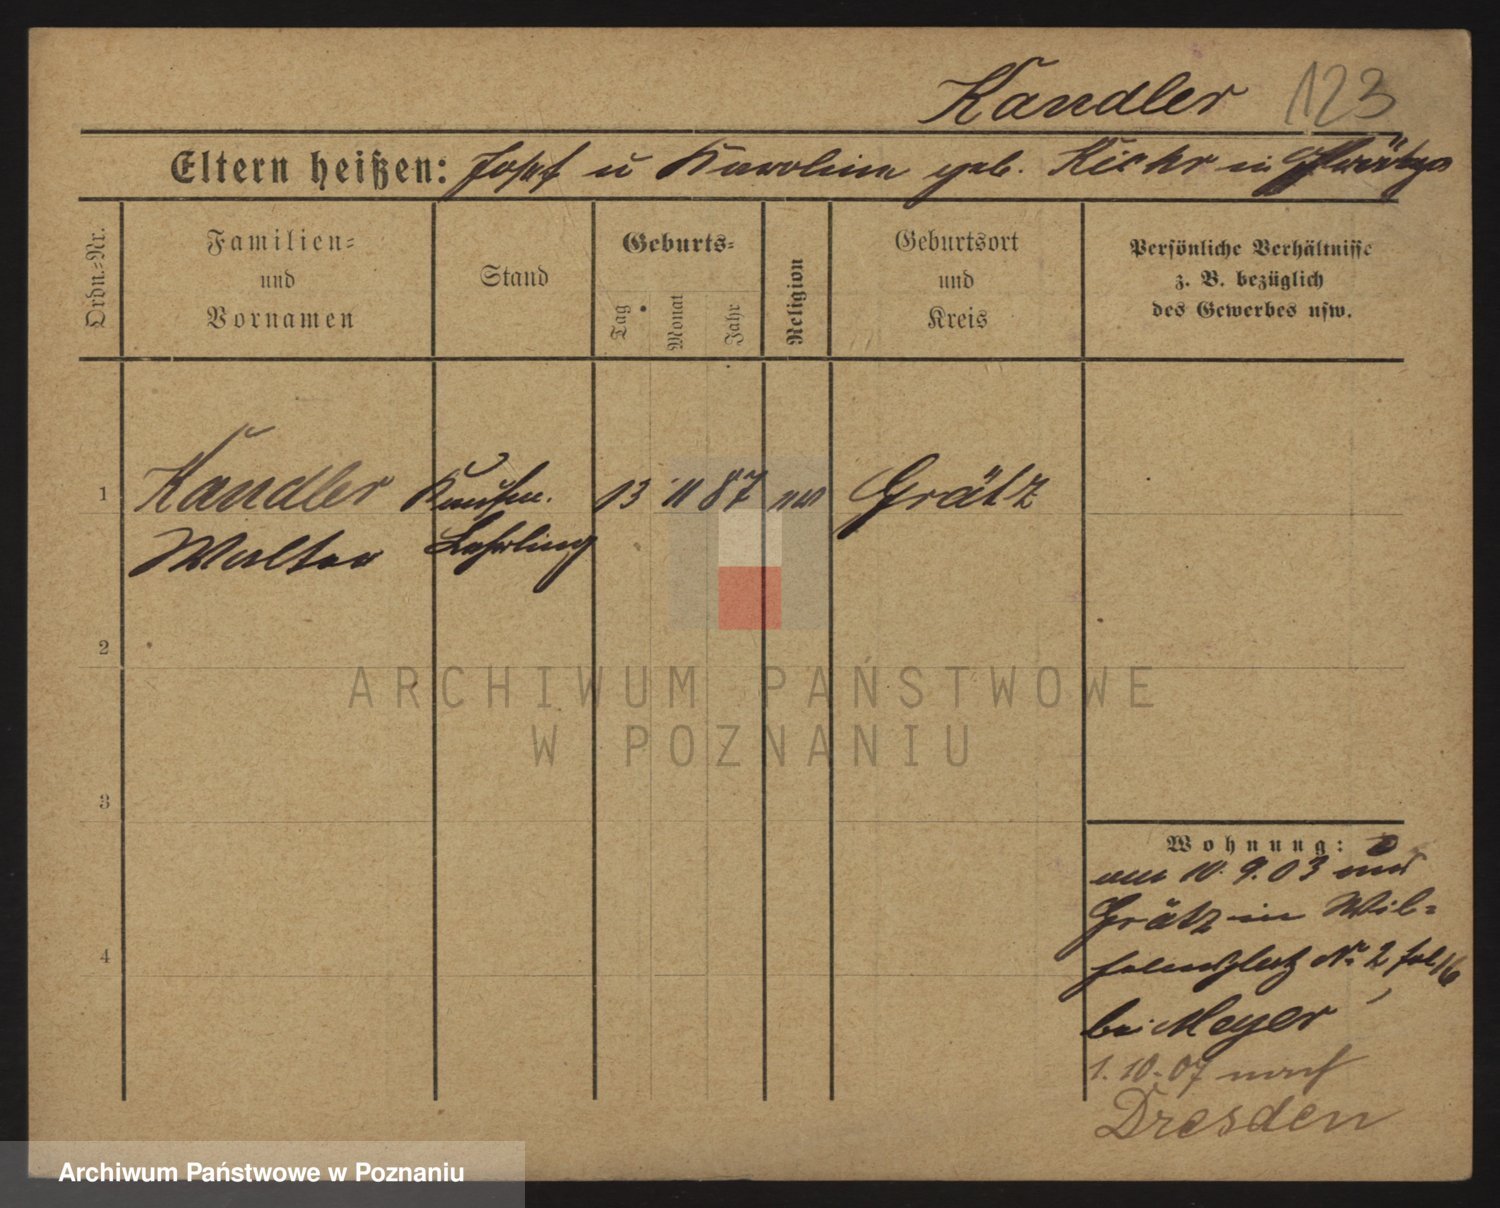 Kandler 123
Eltern heißen: Josef u Karoline geb. in
Ordn.=Nr.
Familien=
und
Vornamen
Stand
Geburts=
Tag
Monat
Jahr
Religion
Geburtsort
und
Kreis
Persönliche Verhältnisse
z. B. bezüglich
des Gewerbes usw.
1 Kandler Kaufm. 13 11 87 Grätz
Walter Lehrling
2
3
4
Wohnung:
am 10. 9. 03 aus
Grätz in Wil=
helmsplatz No 2 fol 16
bei Meyer
1. 10. 07 nach
Dresden
ARCHIWUM PAŃSTWOWE
W POZNANIU
Archiwum Państwowe w Poznaniu